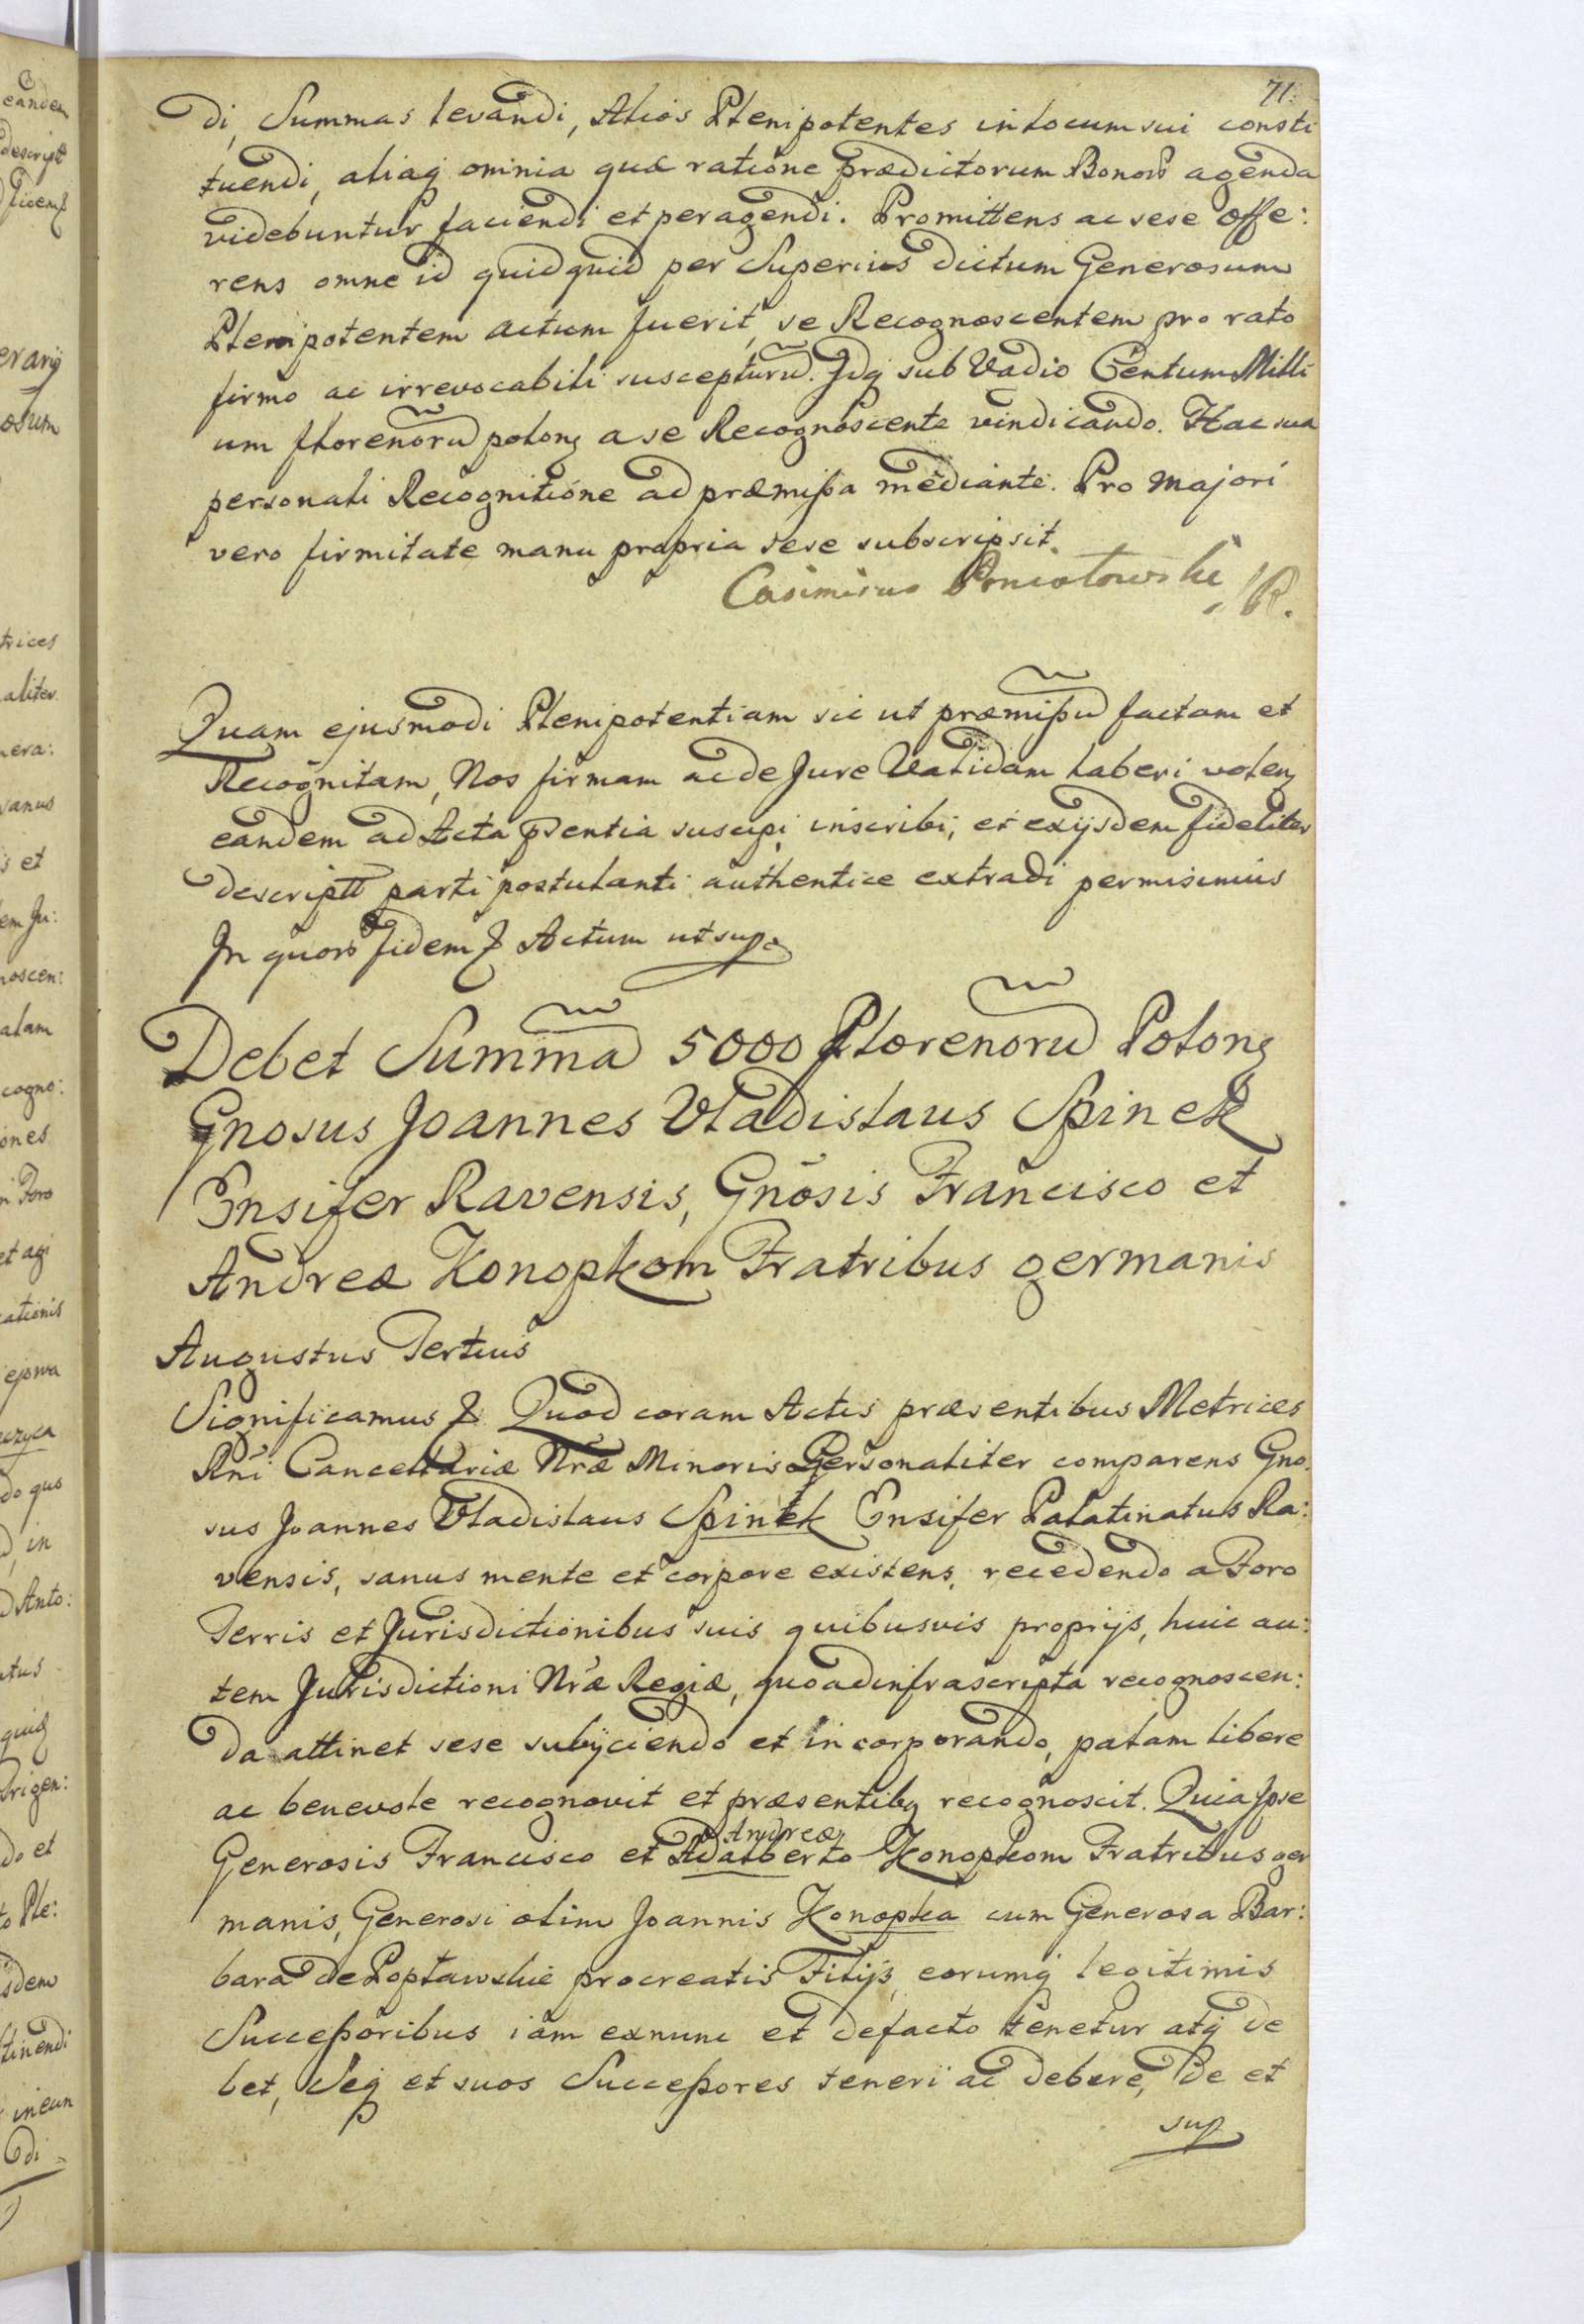 71.
di, Summas levandi, Alios Plenipotentes in locum sui consti
tuendi, aliaq omnia quæ ratione prædictorum Bonor agenda
videbuntur faciendi et peragendi. Promittens ac sese offe:
rens omne id quidquid per Superius dictum Generosum
Plenipotentem actum fuerit, se Recognoscentem pro rato
firmo ac irrevocabili suscepturũ. Idq sub Vadio Centum Milli
um florenorũ polonq a se Recognoscente vindicando. Hac sua
personali Recognitione ad præmißa mediante. Pro majori
vero firmitate manu propria sese subscripsit.
Casimirus Poniatowski
Quam ejusmodi Plenipotentiam sic ut præmißũ factam et
Recognitam, Nos firmam ac de Jure Validam haberi volenq
eandem ad Acta pđentia suscipi, inscribi, et ex ijsdem fideliter
descriptt parti postulanti authentice extradi permisimus
In quor fidem & Actum ut sup.
Debet Summã 5000 Florenorũ Polonq
Gnosus Joannes Vladislaus Spinek
Ensifer Ravensis, Gnõsis Francisco et
Andreæ Konopkom Fratribus germanis
Augustus Tertius
Significamus & Quod coram Actis præsentibus Metrices
Rni Cancellariæ Nræ Minoris Personaliter comparens Gno:
sus Joannes Vladislaus Spinek Ensifer Palatinatus Ra:
vensis, sanus mente et corpore existens, recedendo a Foro
Terris et Jurisdictionibus suis quibusvis proprijs, huic au:
tem Jurisdictioni Nræ Regiæ, quo ad infrascripta recognoscen:
da attinet sese subijciendo et incorporando, palam libere
ac benevole recognovit et præsentibq recognoscit. Quia Ipse
Andreæ
Generosis Francisco et Adalberto Konopkom Fratribus ger
manis, Generosi olim Joannis Konopka cum Generosa Bar:
bara de Popławskie procreatis Filijs, eorumq legitimis
Succeßoribus iam exnunc et defacto tenetur atq de
bet, Seq et suos Succeßores teneri ac debere, de et
sup